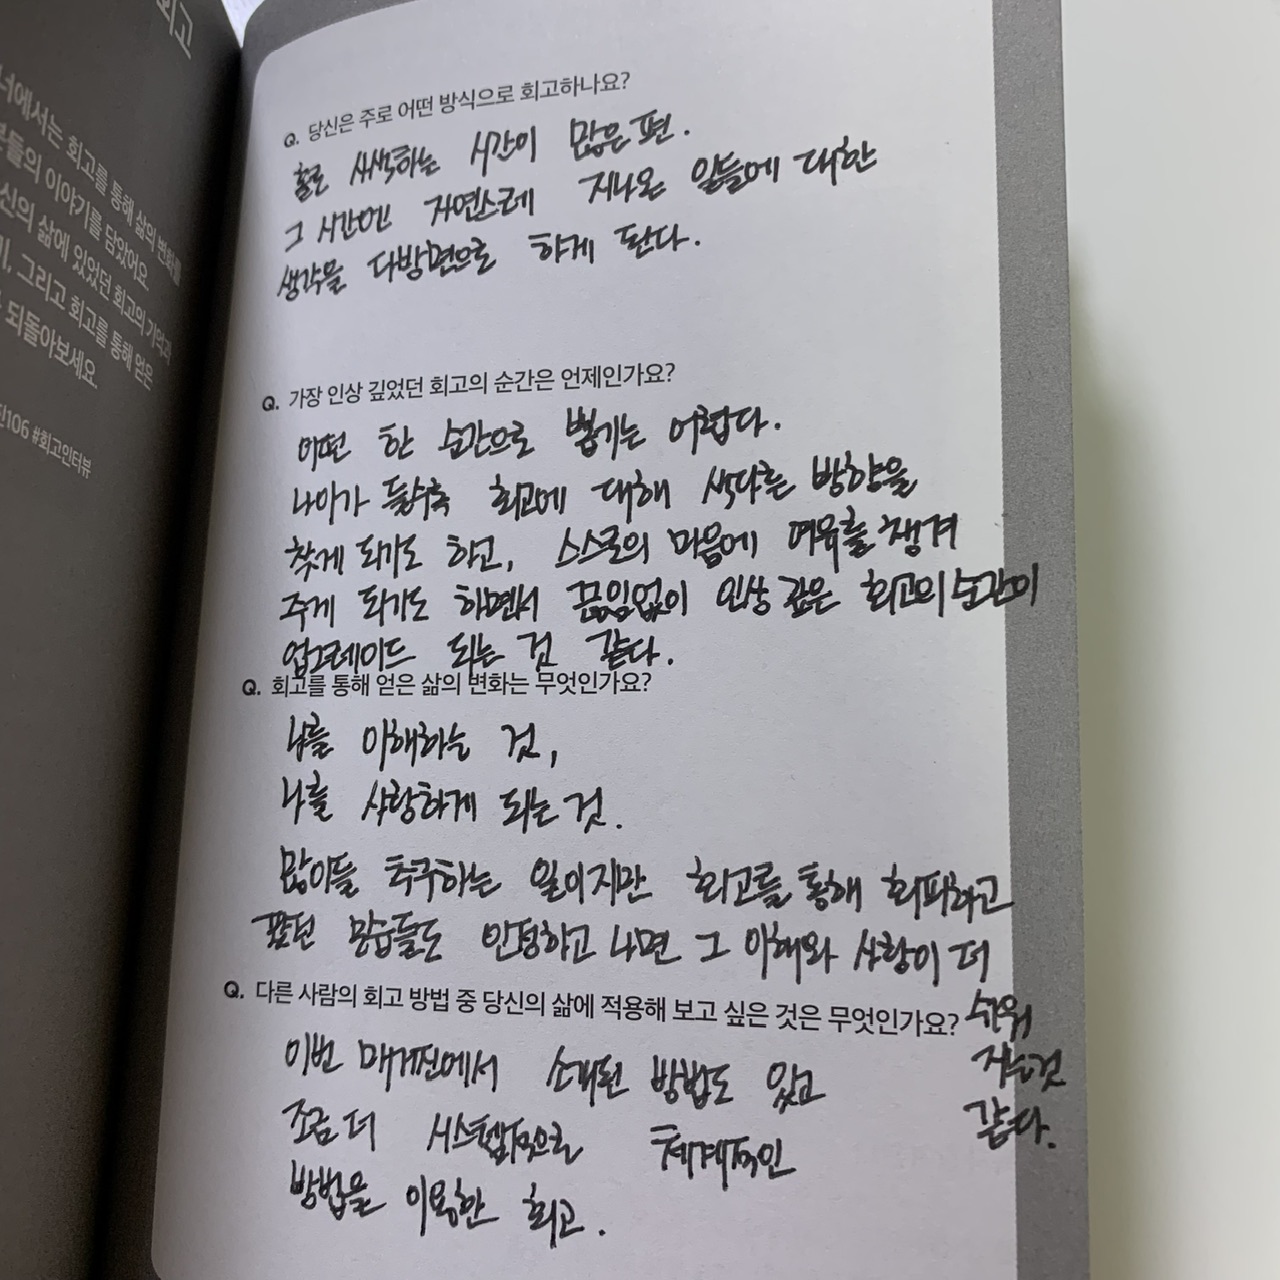 회고
너에서는 회고를 통해 삶의 변화를
분들의 이야기를 담았어요
신의 삶에 있었던 회고의 기억과
기, 그리고 회고를 통해 얻은
되돌아보세요.
진106 #회고인터뷰
Q. 당신은 주로 어떤 방식으로 회고하나요?
홀로 사색하는 시간이 많은 편.
그 시간엔 자연스레 지나온 일들에 대한
생각을 다방면으로 하게 된다.
Q. 가장 인상 깊었던 회고의 순간은 언제인가요?
어떤 한 순간으로 뽑기는 어렵다.
나이가 들수록 회고에 대해 색다른 방향을
찾게 되기도 하고, 스스로의 마음에 여유를 챙겨
주게 되기도 하면서 끊임없이 인상 깊은 회고의 순간이
업그레이드 되는 것 같다.
Q. 회고를 통해 얻은 삶의 변화는 무엇인가요?
나를 이해하는 것,
나를 사랑하게 되는 것.
많이들 추구하는 일이지만 회고를 통해 회피하고
팠던 모습들도 인정하고 나면 그 이해와 사랑이 더
쉬워
지는 것
같다.
Q. 다른 사람의 회고 방법 중 당신의 삶에 적용해 보고 싶은 것은 무엇인가요?
이번 매거진에서 소개된 방법도 있고
조금 더 시스템적으로 체계적인
방법을 이용한 회고.